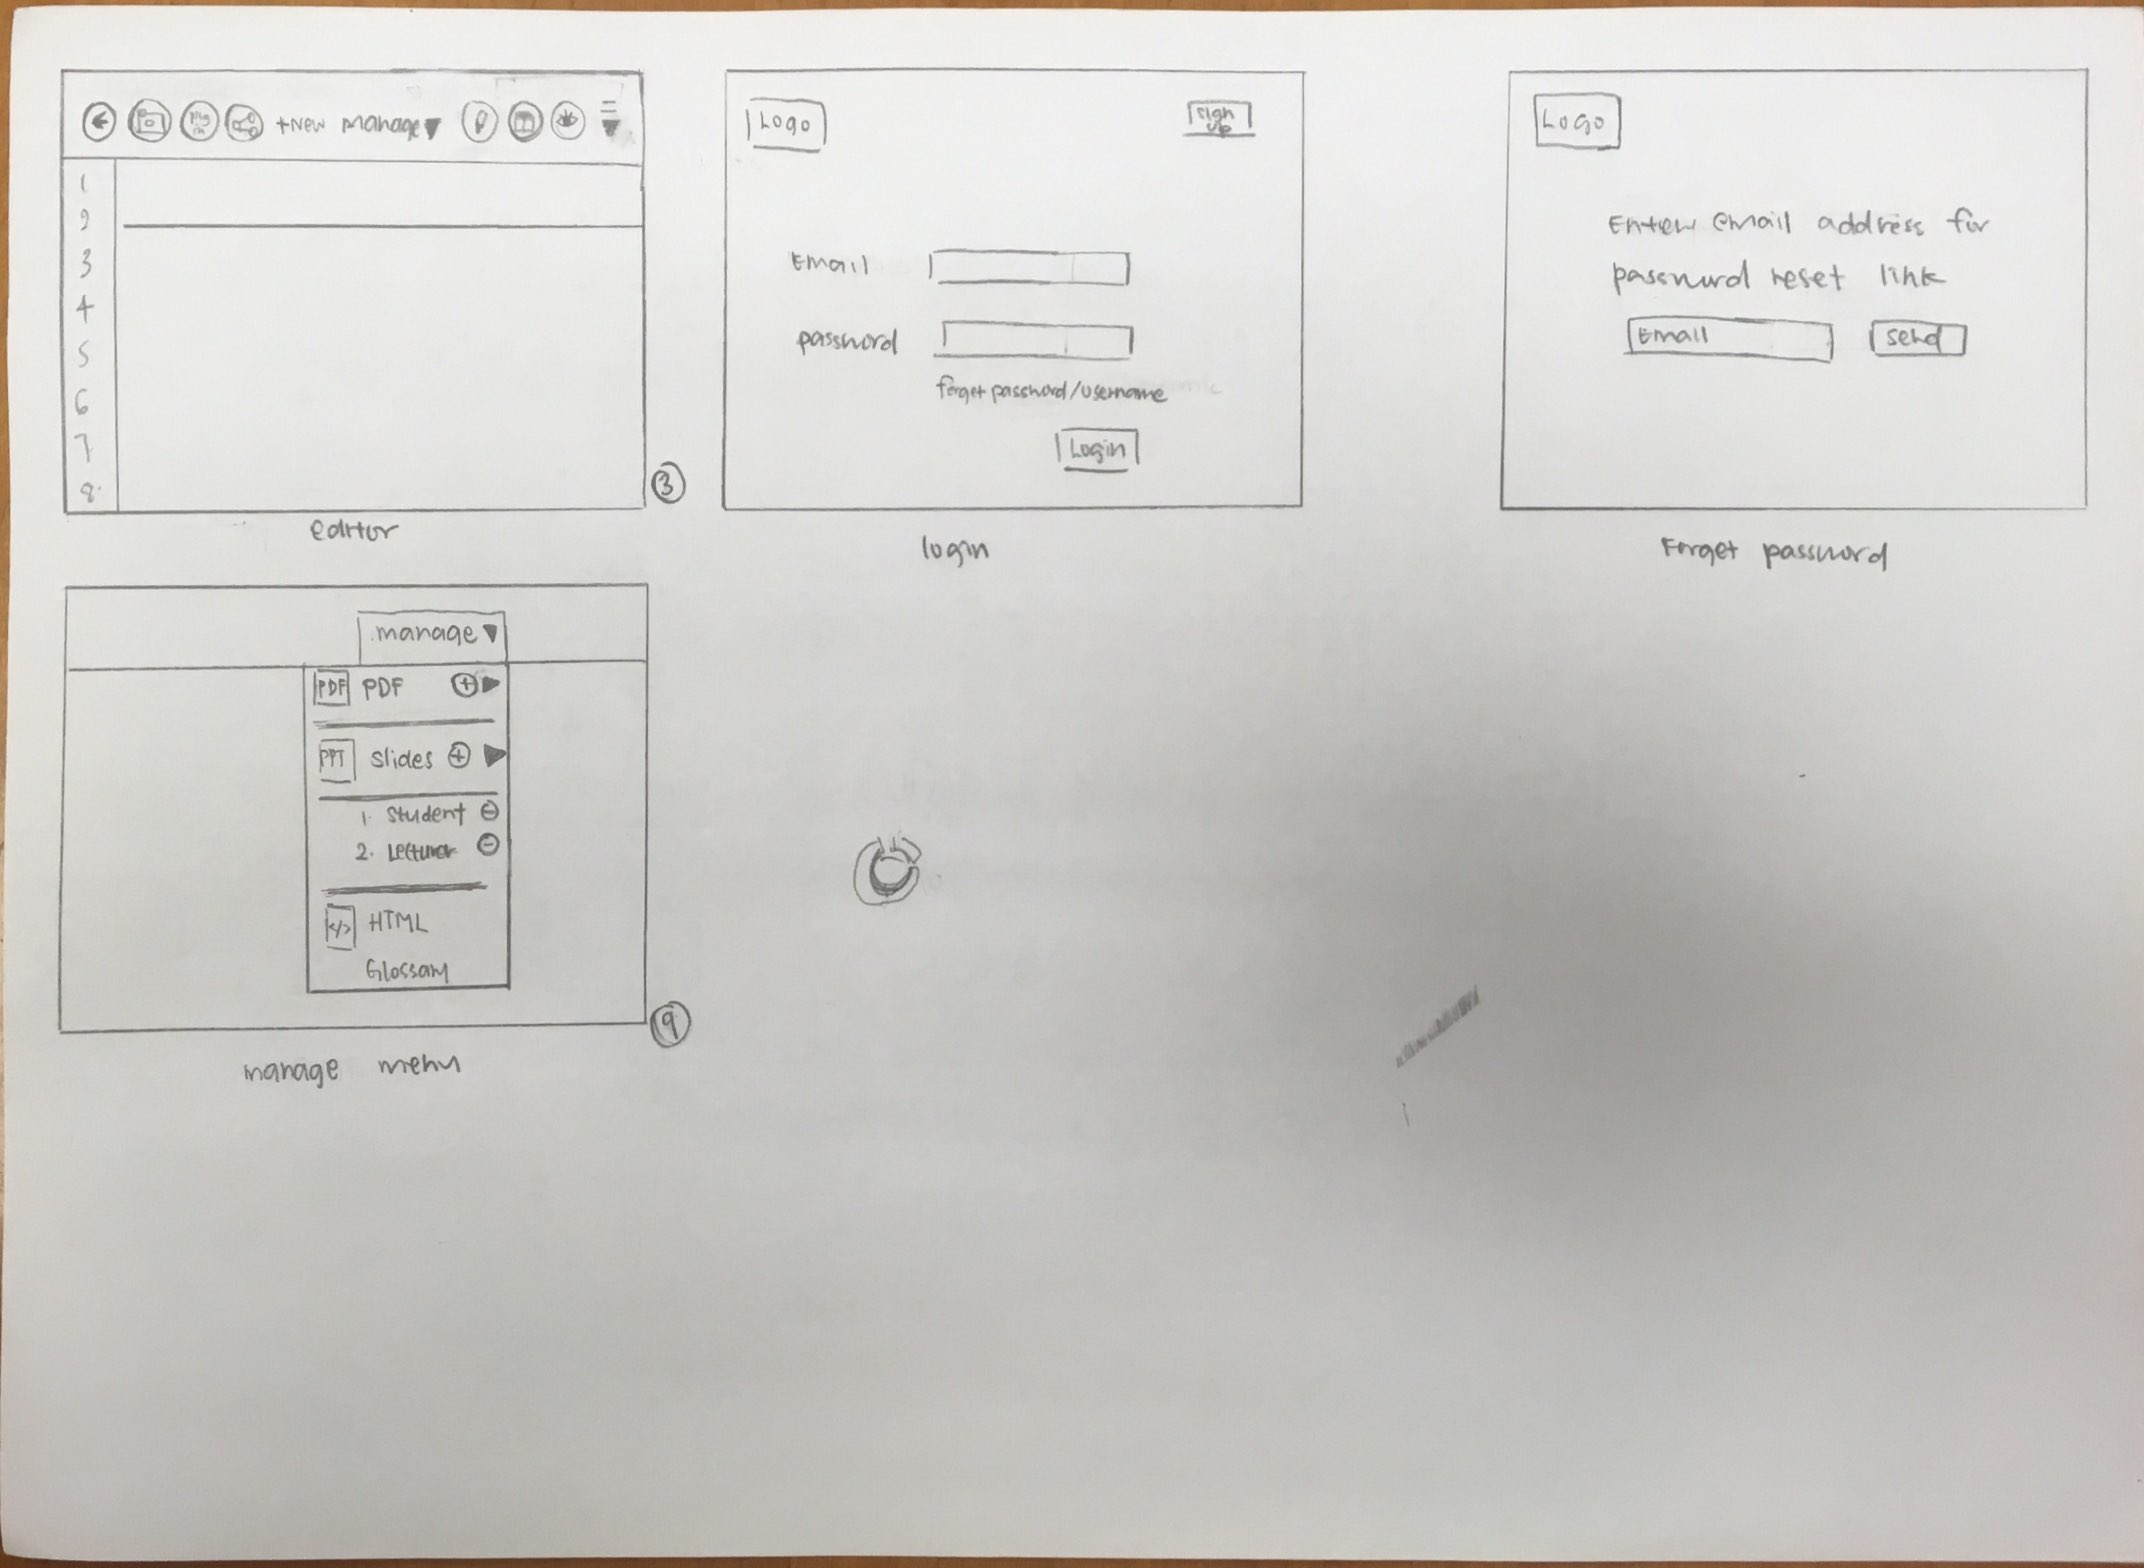 +New manage
1
2
3
4
5
6
7
8
3
editor
Logo
sign
up
Email
password
forget password/username
Login
login
Logo
Enter email address for
password reset link
Email
send
Forget password
manage
PDF PDF
PPT slides
1. student
2. Lecturer
</> HTML
Glossary
9
manage menu